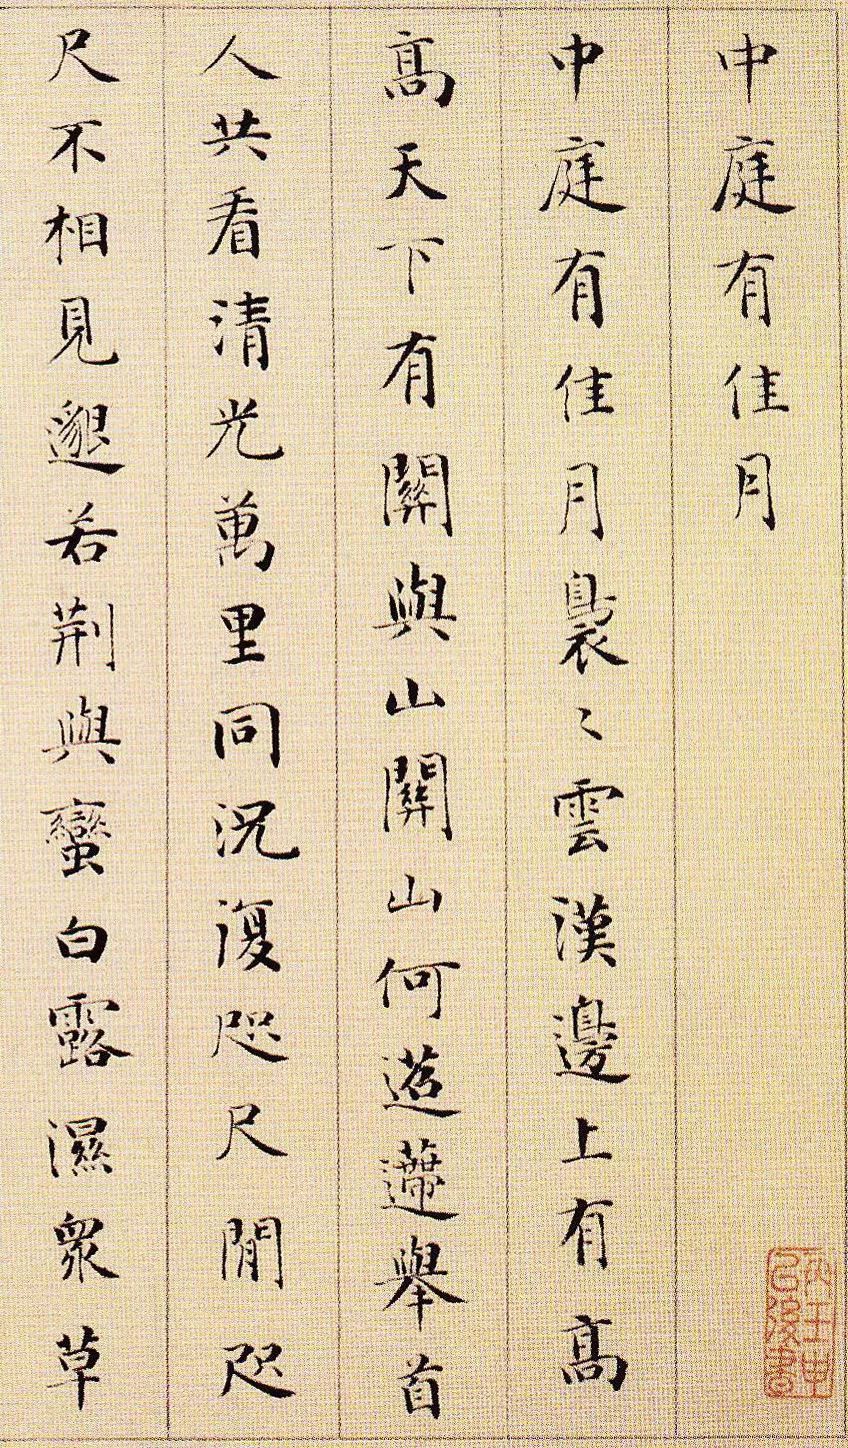 中庭有佳月
中庭有佳月裊〻雲漢邊上有高
高天下有關與山關山何迢遰舉首
人共看清光萬里同況復咫尺閒咫
尺不相見邈若荆與蠻白露濕衆草